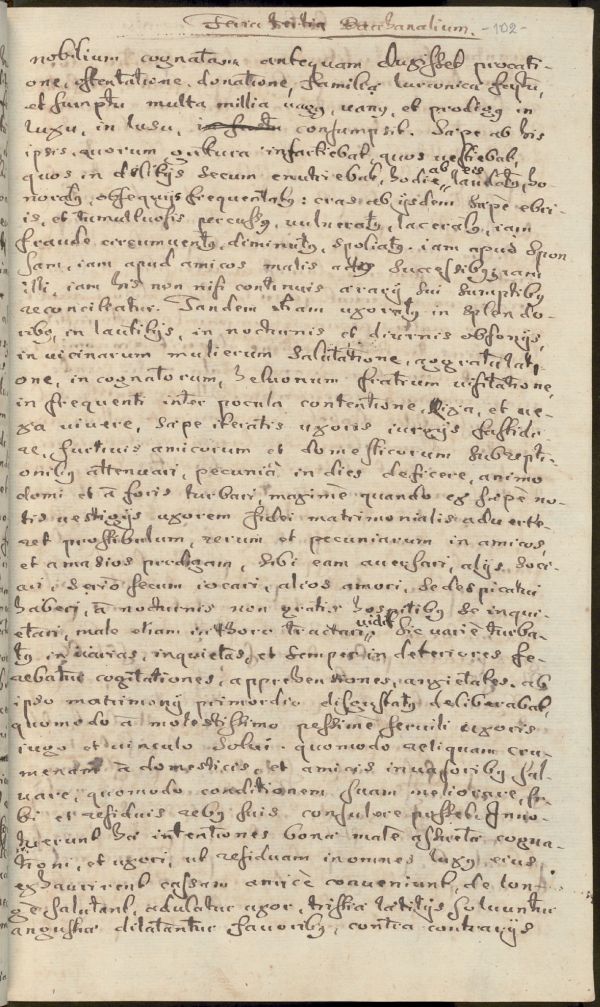 Feria tertia Bacchanalium. -102-
nobilium cognatam antequam duxisset procati-
one, ostentatione, donatione, familiæ luronica festu,
et sumptu multa millia vagus, vanus, et prodigus in
luxu, in lusu, consumpsit. Sæpe ab his
ipsis, quorum guttura infarciebat, quos vestiebat,
quos in delitijs secum enutriebat, hodie ab eis laudatus, ho-
noratus, obsequijs frequentatus: cras ab ijsdem sæpe ebri-
is, et tumultuosis percussus, vulneratus, laceratus, iam
fraude circumventus, diminutus, spoliatus. iam apud spon
sam, iam apud amicos malis successibus
illi, iam his non nisi continuis ararij sui sumptibus
reconciliatur. Tandem etiam uxoratus in splendo-
ribus, in lautitijs, in nocturnis et diurnis obsonijs,
in vicinarum mulierum salutatione, aggratulati-
one, in cognatorum, heluonum fratrum visitatione,
in frequenti inter pocula contentione, rixa, et ve-
xa vivere, sæpe iteratis uxoris iurgijs fastidi-
re, furtivis amicorum et domesticorum subrepti-
onibus attenuari, pecunia in dies deficere, animo
domi et à foris turbari, maximè quando ex sæpè no-
tis vestigijs uxorem fidei matrimonialis adverte-
ret prostibulum, rerum et pecuniarum in amicos,
et amasios prodigam, sibi eam aversari, alijs soci-
ari, serio secum iocari, alios amori, se despicatui
haberi, à nocturnis non gratis hospitibus se inqui-
etari, male etiam in thoro tractari vidit. Sic variè turba-
tus in varias, inquietas, et semper in deteriores fe-
rebatur cogitationes, apprehensiones, angietates. ab
ipso matrimonij primordio disgustatus deliberabat,
quomodo à molestissimo pessimè servili uxoris
iugo et vinculo solvi. quomodo reliquam cru-
menam à domesticis, et amicis invasoribus sal-
vare, quomodo conditionem suam meliorare, si-
bi et residuis rebus suis consulere posset. Inno-
tuerunt hæ intentiones bonæ malè assuetæ cogna-
tioni, et uxori, ut residuam in omnes luxus eius
exhaurirent cassam amicè conveniunt, de lon-
gè salutant, adulatur uxor, tristia lætitijs solvuntur
angustiæ dilatantur favoribus, contra contrarijs